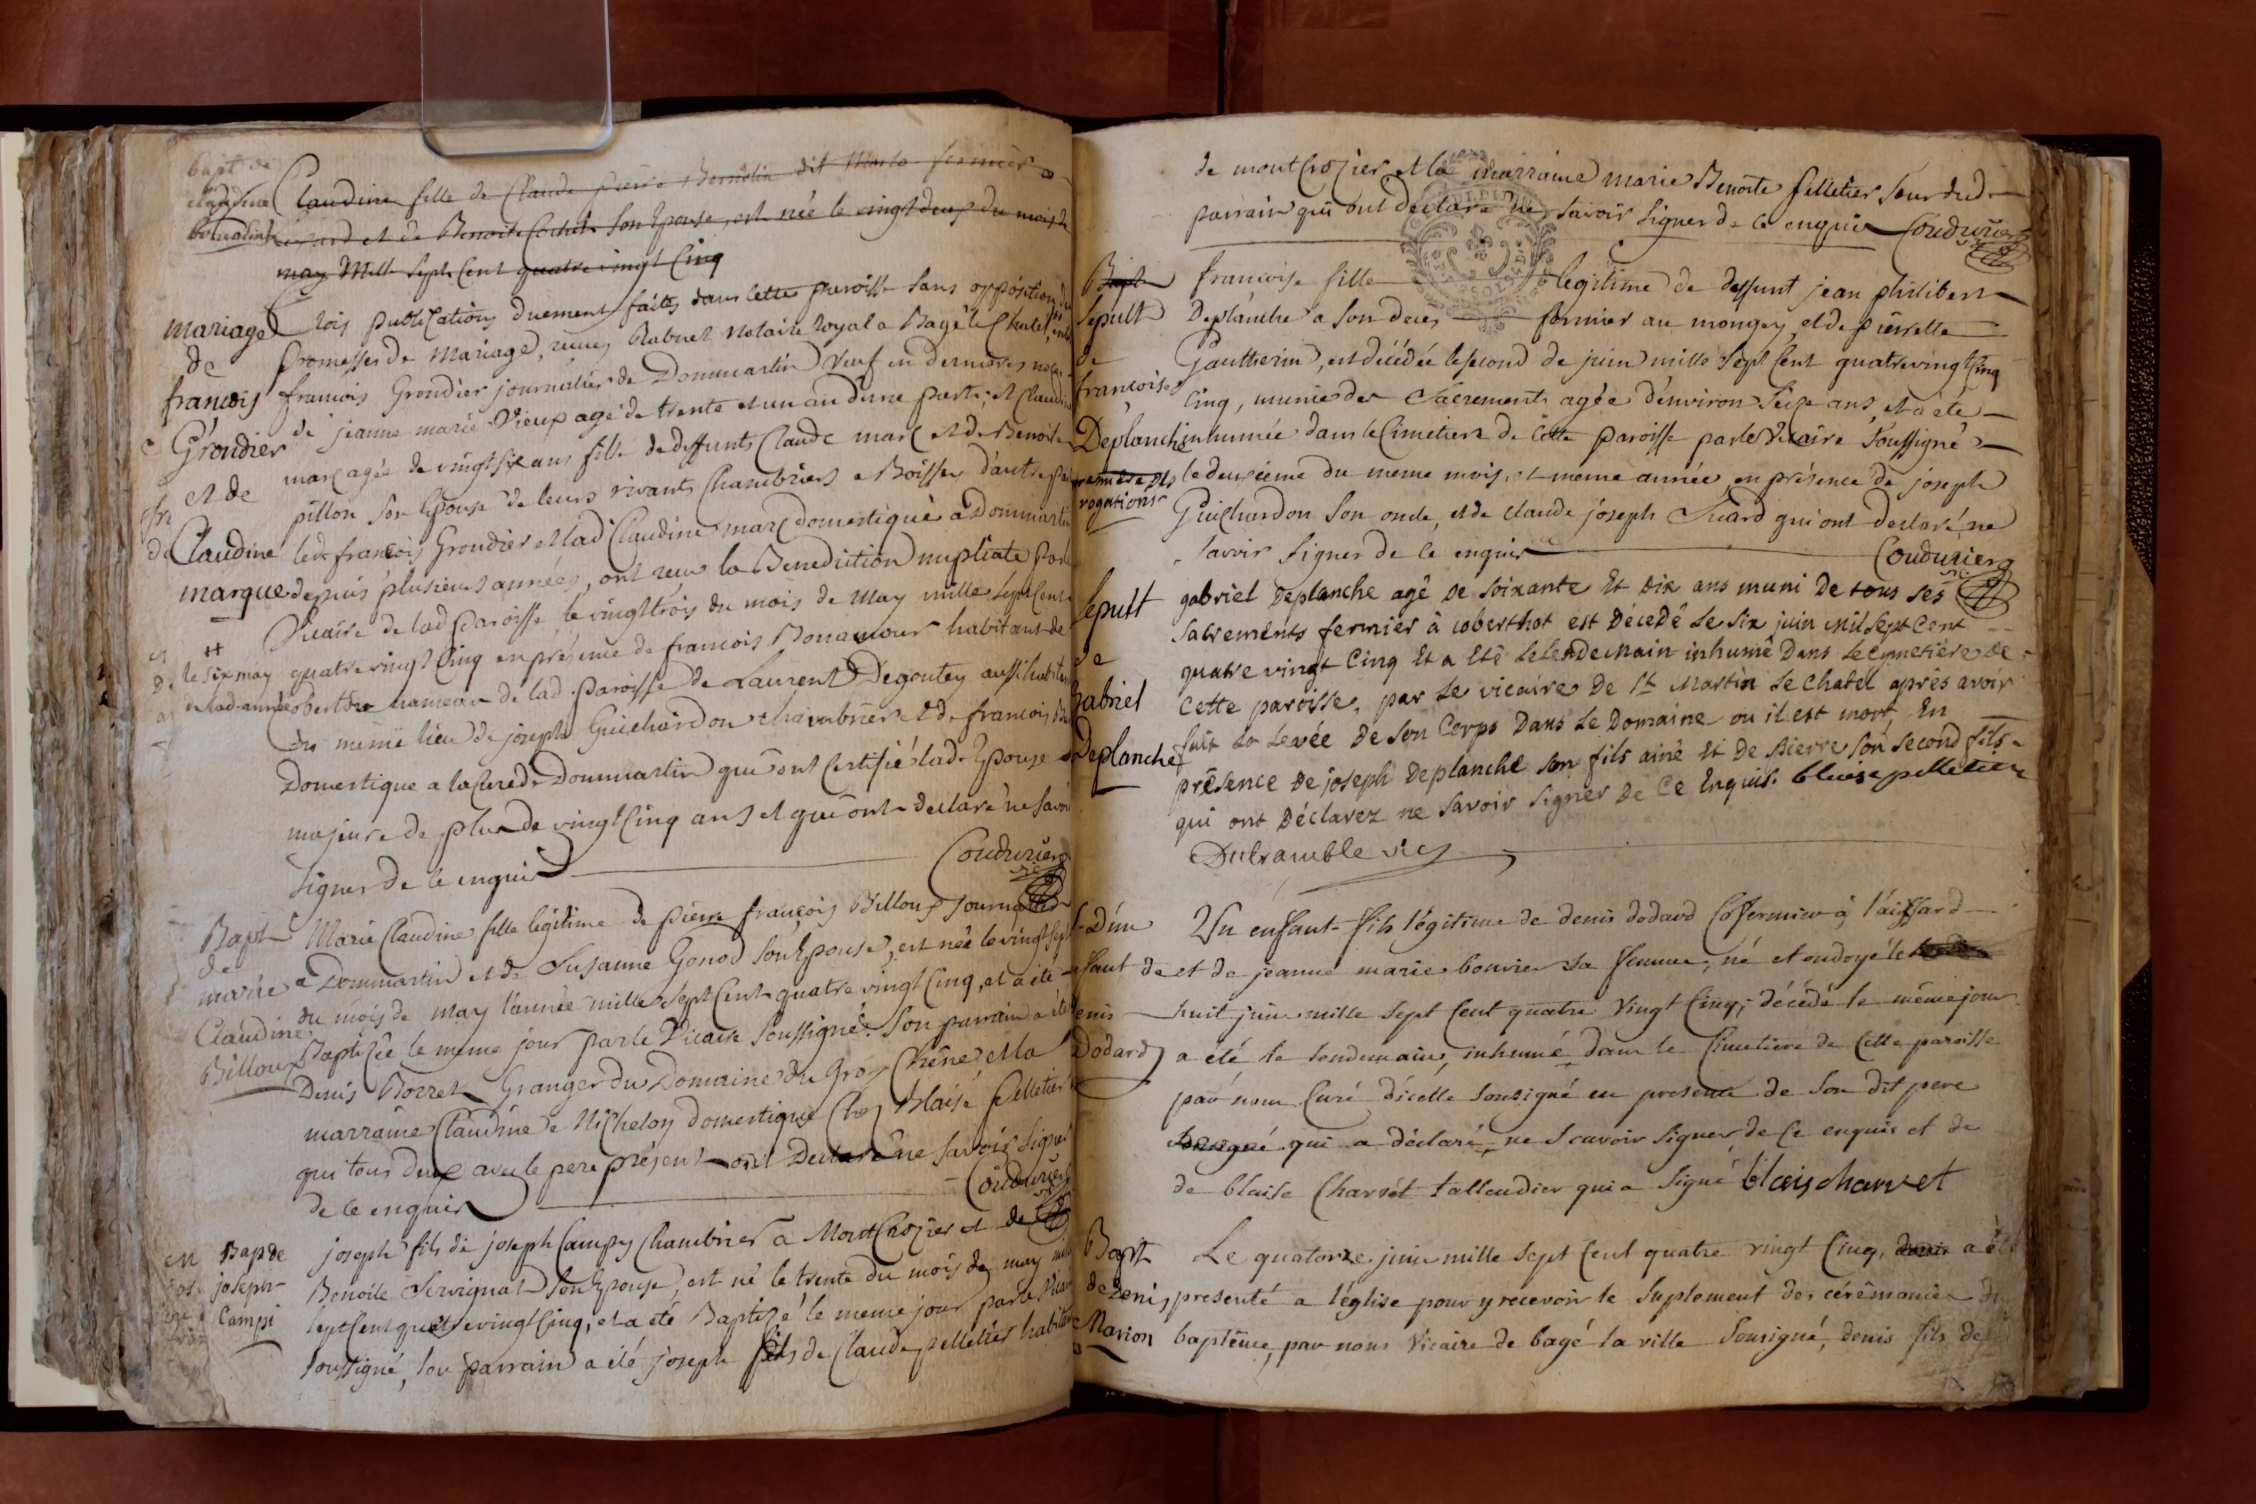 bapt de
Claudine
Claudine fille de Claude pierre dit fermier a
et de Benoite Cochet Son Epouse, est née le vingt deux du mois de
may Mille Sept Cent quatre vingt Cinq
mariage
de
françois
Grondier
et de
Claudine
marque
le six may
de lad année
trois publications duement faites dans cette paroisse sans opposition
promesses de mariage, reçues Rabuel notaire Royal a Bagé le Chatel, entre
françois Grondier journalier de Dommartin Veuf en dernieres noces
de jeanne marie Vieux agé de trente et un an d'une part; et Claudine
marc agée de vingt six ans fille de deffunts Claude marc et de Benoite
pillon Son Epouse de leurs vivants Chambriers a Boissey d'autre part
led françois Grondier et lad Claudine marc domestique à Dommartin
depuis plusieurs années, ont reçu la Benediction nuptiale par le
Vicaire de lad paroisse le vingt trois du mois de May mille Sept Cent
quatre vingt Cinq en présence de françois Bonamour habitant de
hameau de lad paroisse de Laurent Degoutey aussi habitant
du même lieu de joseph Guichardon chambrier et de françois
Domestique a la Cure de Dommartin qui ont Certifié lad Epouse
majeure de plus de vingt Cinq ans et qui ont declaré ne savoir
signer de ce enquis
Couduriers
vic
Bapt
de
marie
Claudine
Billoux
Marie Claudine fille légitime de pierre françois Billoux journalier
a Dommartin et de Susanne Gonod Son Epouse, est née le vingt Sept
du mois de may l'année mille Sept Cent quatre vingt Cinq, et a été
Baptizée le meme jour par le Vicaire Soussigné. Son parrain a été
Denis Borret Granger du Domaine du Gros Chêne, et la
marraine Claudine Michelon domestique Chez Blaise pelletier
qui tous deux avec le pere présent ont Declaré ne Savoir Signer
de ce enquis
Couduriers
Bap de
joseph
Campi
joseph fils de joseph Campy Chambrier à MontCrozier et de
Benoite Servignat Son Epouse, est né le trente du mois de may mille
Sept Cent quatre vingt Cinq, et a été Baptizé le meme jour par le Vicaire
soussigné, son parrain a été joseph fils de Claude pelletier habitant
de montCrozier et la marraine marie Benoite pelletier Seur dud
parrain qui ont Declaré ne savoir signer de ce enquis Couduriers
Bapt
Sepult
de
francoise
Deplanche
rogations
francoise fille legitime de deffunt jean philibert
Deplanche a son deces fermier au mongey et de pierrette
Gautherin, est décédée le second de juin mille Sept Cent quatre vingt Cinq
Cinq, munie des Sacrements agée d'environ Seize ans, et a été
inhumée dans le Cimetiere de Cette paroisse par le Vicaire Soussigné
le deuxieme du meme mois, et meme année, en présence de joseph
Guichardon Son oncle, et de Claude joseph Suard qui ont declaré ne
savoir signer de ce enquis
Couduriers
vic
Sepult
de
Gabriel
Deplanche
gabriel Deplanche agé de soixante Et Dix ans muni De tous ses
sacrements fermier à coberthot est Décédé Le six juin Mil Sept Cent
quatre vingt Cinq Et a Eté Le lendemain inhumé Dans Le Cymetière De
Cette paroisse, par Le vicaire De St Martin Le Chatel après avoir
fait La Levée De son Corps Dans Le Domaine ou il est mort, En
présence De joseph Deplanche son fils ainé Et De Pierre son second fils
qui ont Déclarez ne savoir signer De Ce Enquis. blaise pelletier
Dutramble vic
d'un
enfant de
denis
Dodard
Un enfant fils légitime de denis dodard Cofermier à l'aissard
et de jeanne marie bouvier sa femme, né et ondoyé le
huit juin mille sept Cent quatre vingt Cinq, décédé le même jour
a été le lendemain, inhumé dans le Cimetiere de Cette paroisse
par nous Curé d'icelle sousigné en presence de Son dit pere
sousigné qui a déclaré, ne Scavoir signer de Ce enquis et de
de blaise Charvet taillandier qui a signé blais charvet
Bapt
de Denis
Marion
Le quatorze juin mille sept Cent quatre vingt Cinq, denis a été
presenté a l'église pour y recevoir le suplement des cérémonies du
baptême, par nous Vicaire de bagé la ville Sousigné, denis fils de